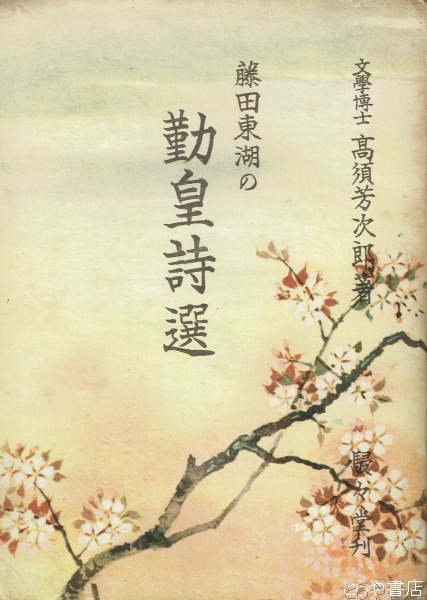 文學博士 高須芳次郎著
藤田東湖の
勤皇詩選
駸々堂刊
とらや書店